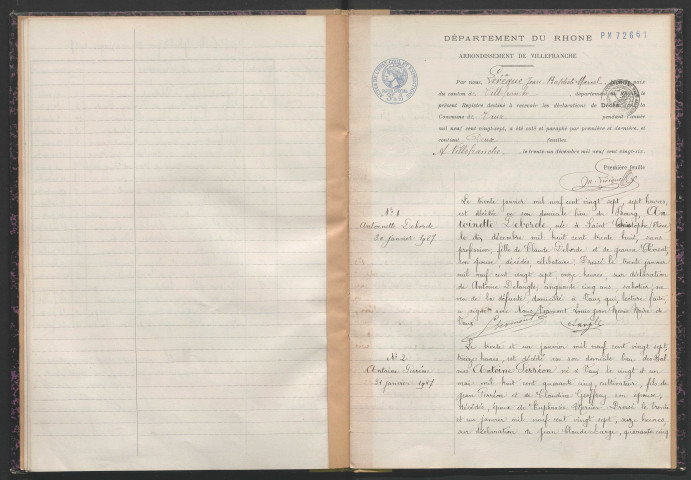 DÉPARTEMENT DU RHONE PH72661
ARRONDISSEMENT DE VILLEFRANCHE
Par nous, Lévêque Jean Baptiste Marcel
du canton de Villefranche département
présent Registre destiné à recevoir les déclarations de Décès
Commune de Vaux pendant l'année
mil neuf cent vingt-sept, a été coté et paraphé par première et dernière, et
contient Deux feuilles
A Villefranche, le trente-un décembre mil neuf cent vingt-six.
Première feuille
N° 1
Antoinette Deborde
30 janvier 1927
Le trente janvier mil neuf cent vingt sept, sept heures,
est décédée en son domicile lieu de Bourg, An-
toinette Deborde, née à Saint
le dix décembre mil huit cent trente huit, sans
profession, fille de Claude Deborde et de
son épouse, décédés, célibataire. Dressé le trente janvier
mil neuf cent vingt sept, onze heures, sur déclaration
de Antoine Delangle, cinquante cinq ans, sabotier, ne-
veu de la défunte, domicilié à Vaux qui, lecture faite,
a signé avec Nous, Louis Maire de
Vaux
N° 2
Antoine Perréon
31 janvier 1927
Le trente et un janvier mil neuf cent vingt sept,
treize heures, est décédé en son domicile lieu des
Antoine Perréon né à Vaux le vingt et un
mai mil huit cent quarante cinq, cultivateur, fils de
Jean Perréon et de Claudine Geoffray son épouse,
décédés, époux de Euphrasie Dressé le trente
et un janvier mil neuf cent vingt sept, seize heures,
sur déclaration de Jean Claude Large, quarante cinq